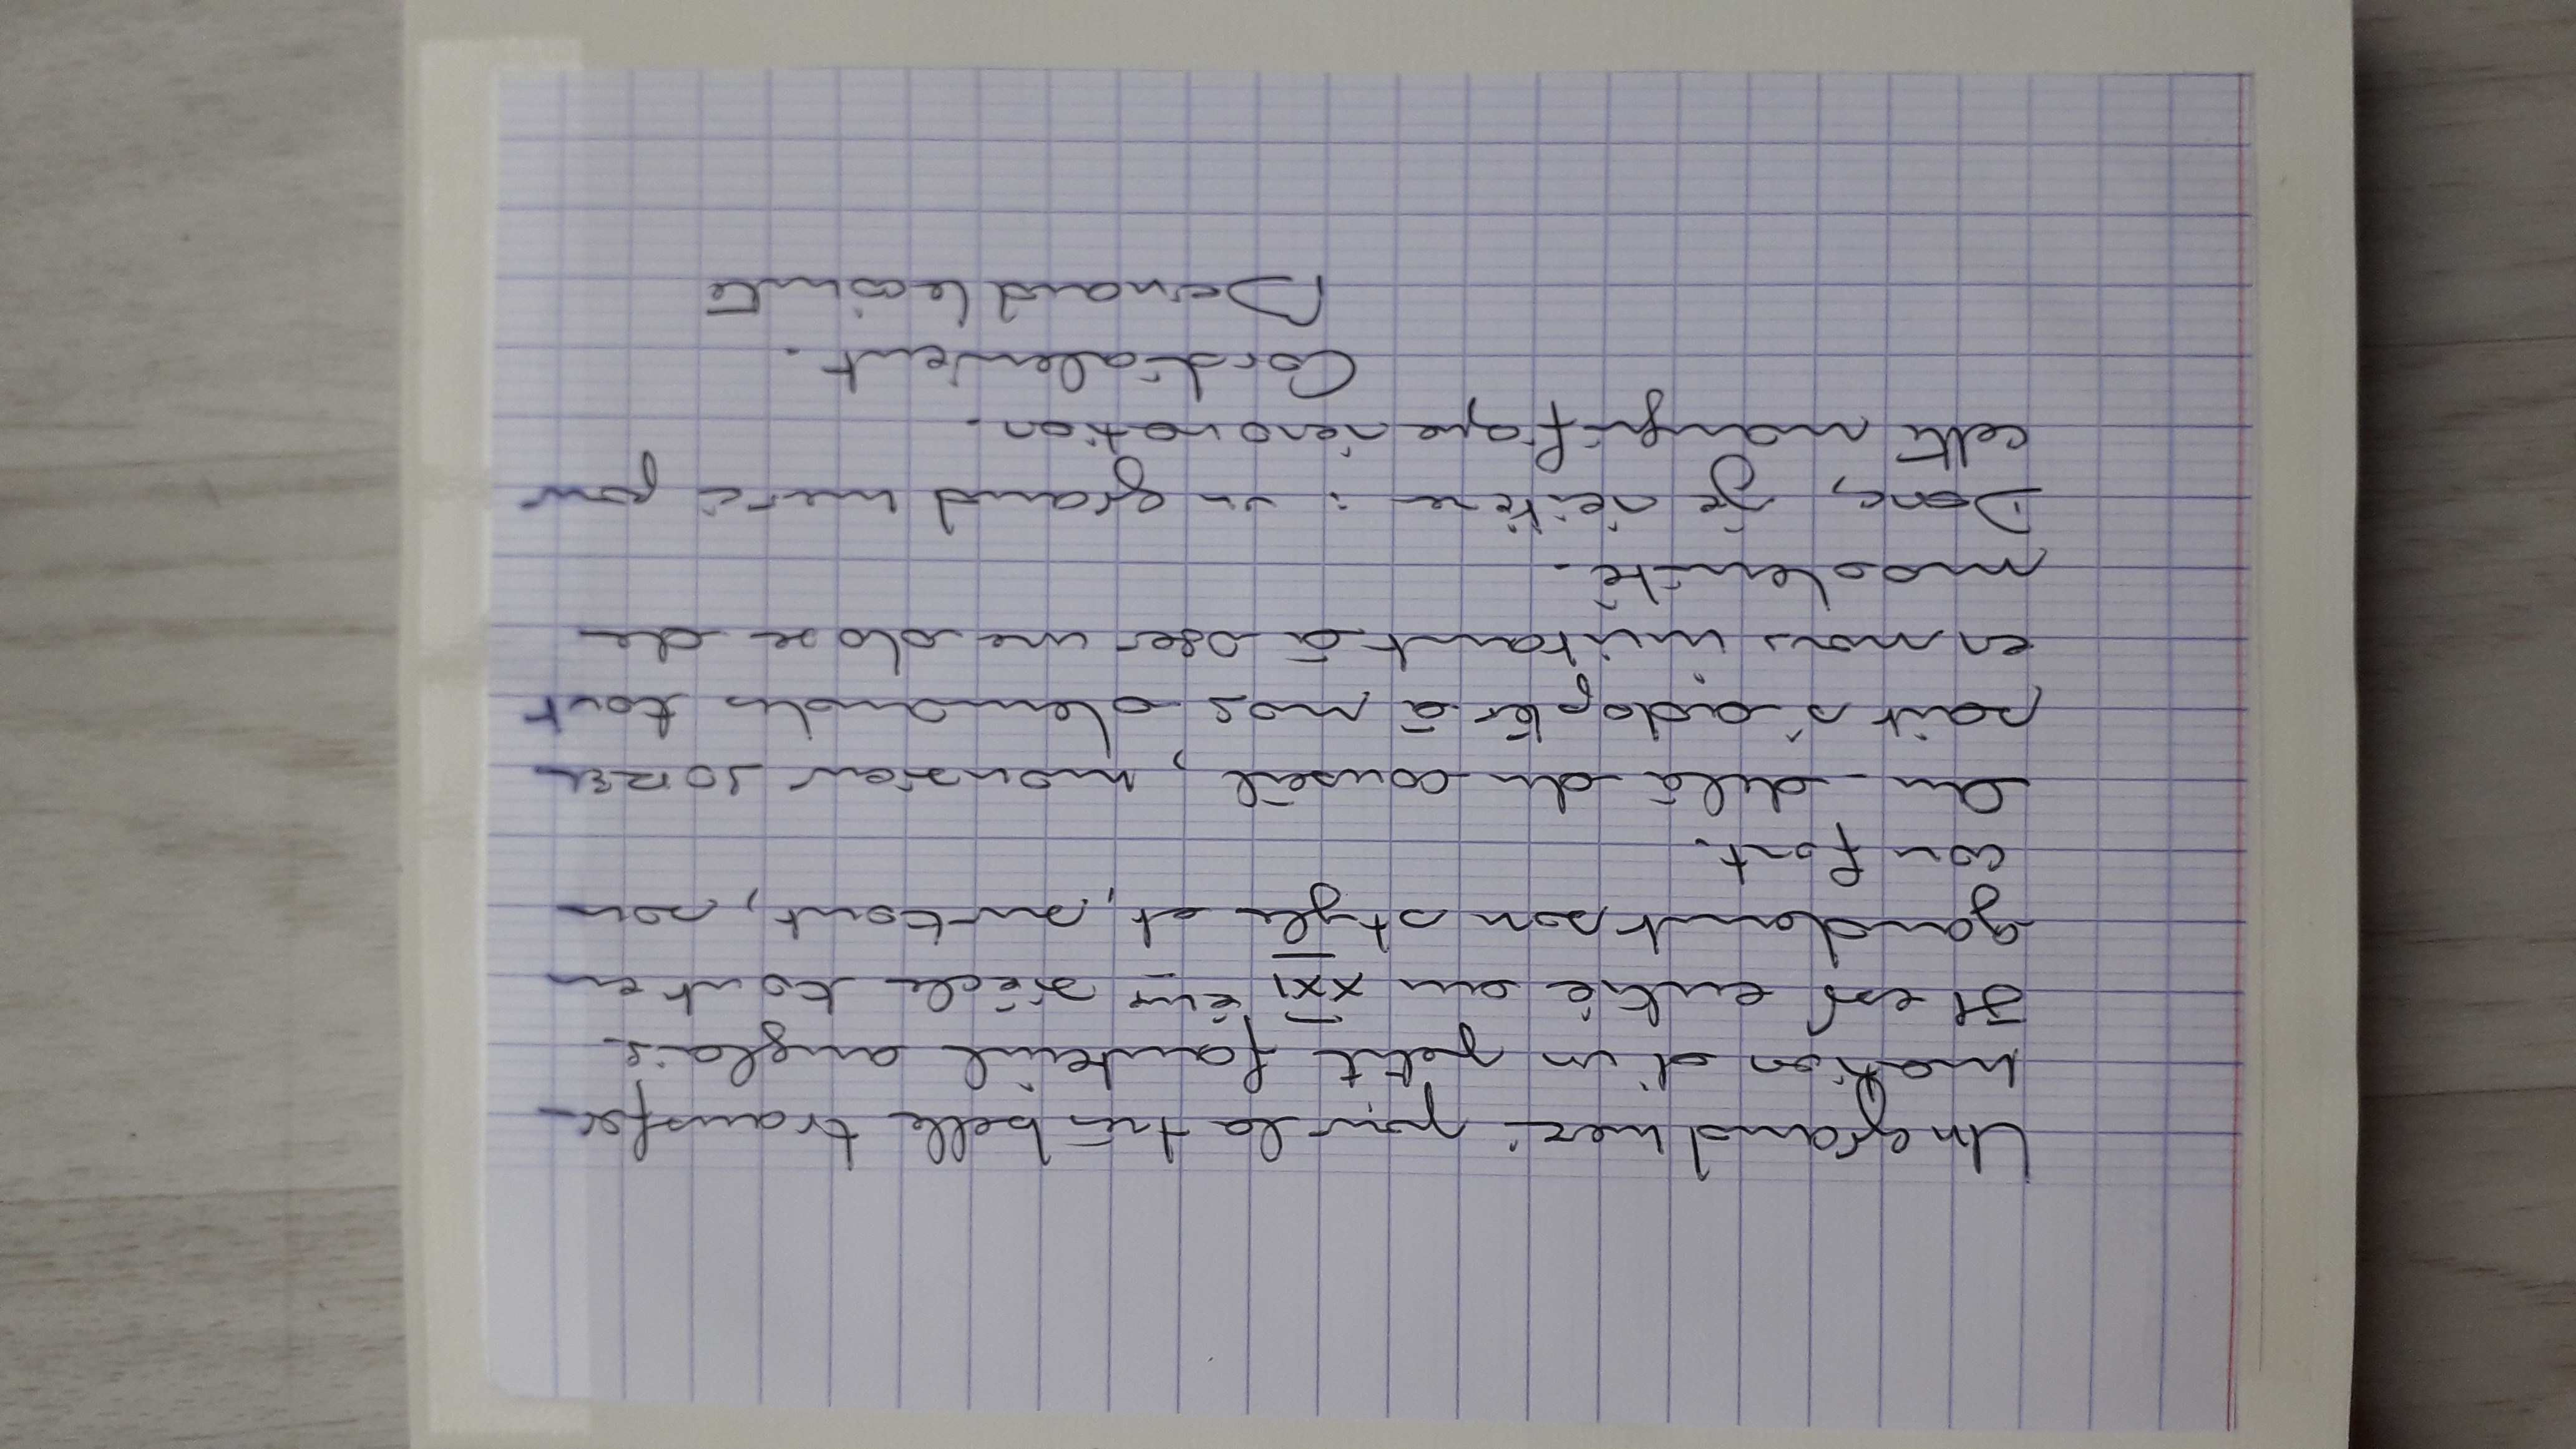 Un grand merci pour la très belle transfor-
mation d'un petit fauteuil anglais.
Il est entré au XXI ème siècle tout en
gardant son style et, surtout, son
confort.
Au-delà du conseil, monsieur SOREL
sait s'adapter à nos demandes tout
en nous invitant à oser une dose de
modernité.
Donc, je réitère : un grand merci pour
cette magnifique rénovation.
Cordialement.
Bernard Lecointe